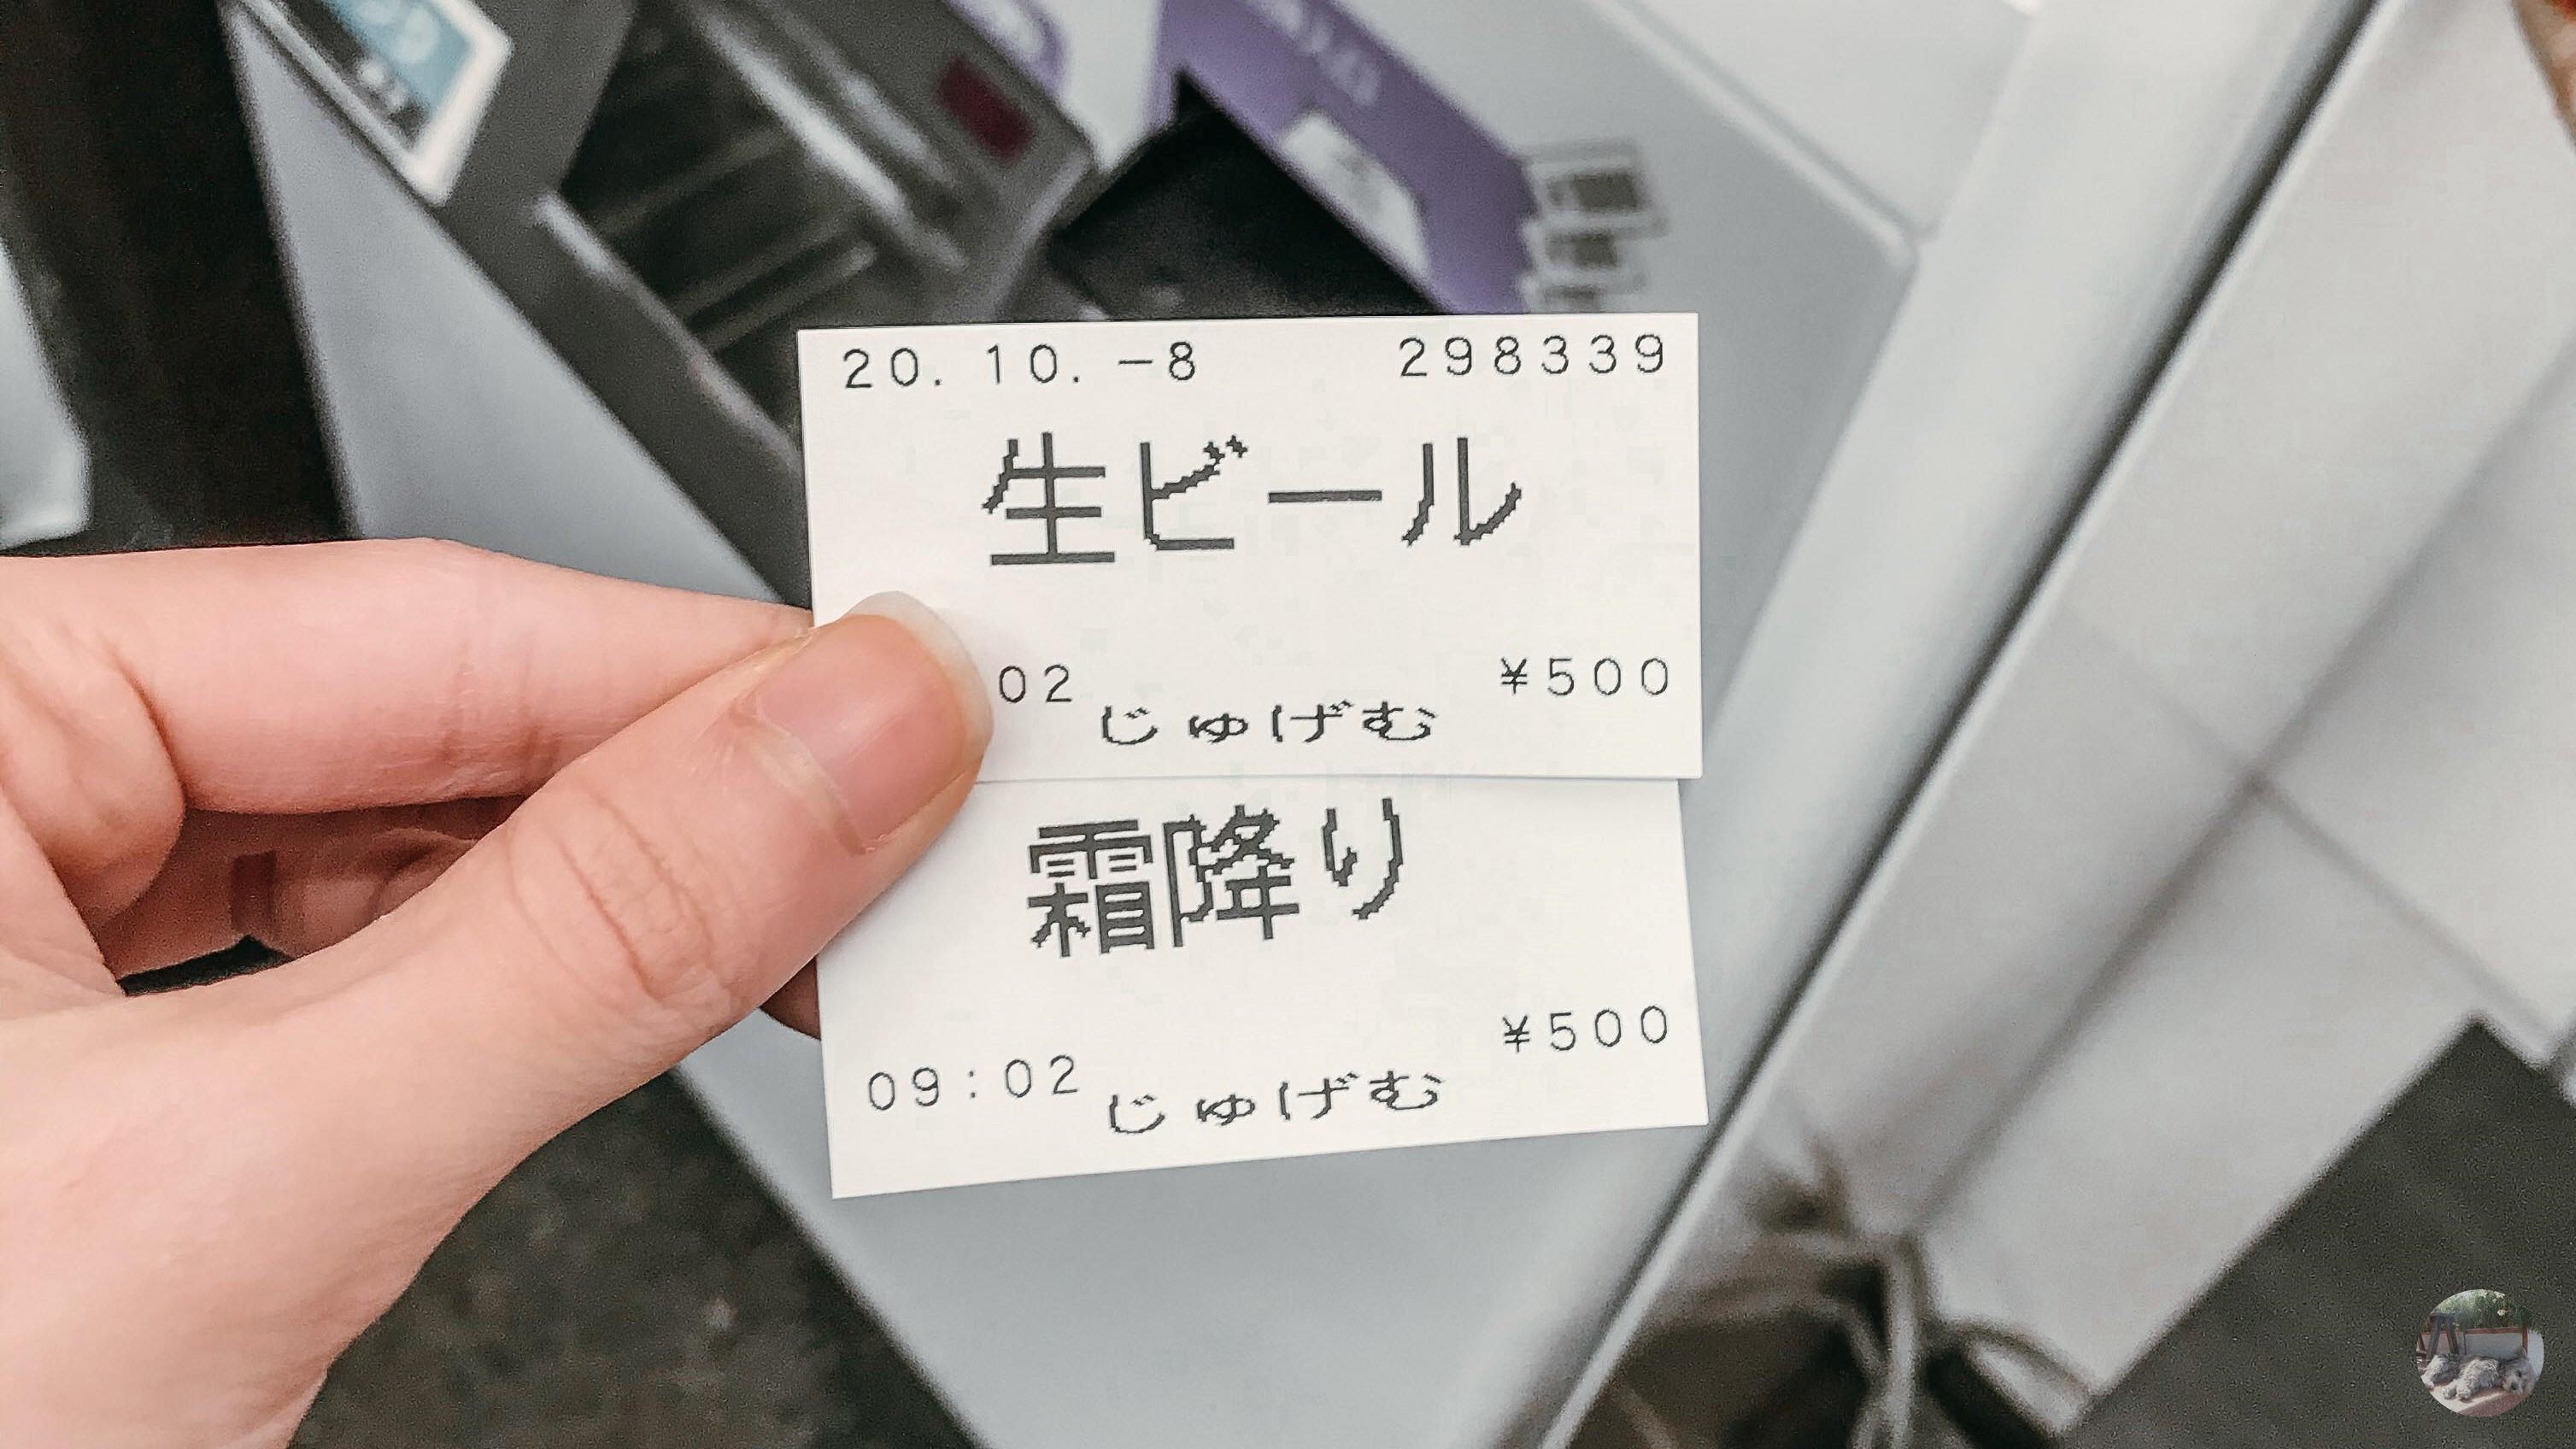 20.10.-8 298339
生ビール
02 じゅげむ ¥500
霜降り
09:02 じゅげむ ¥500